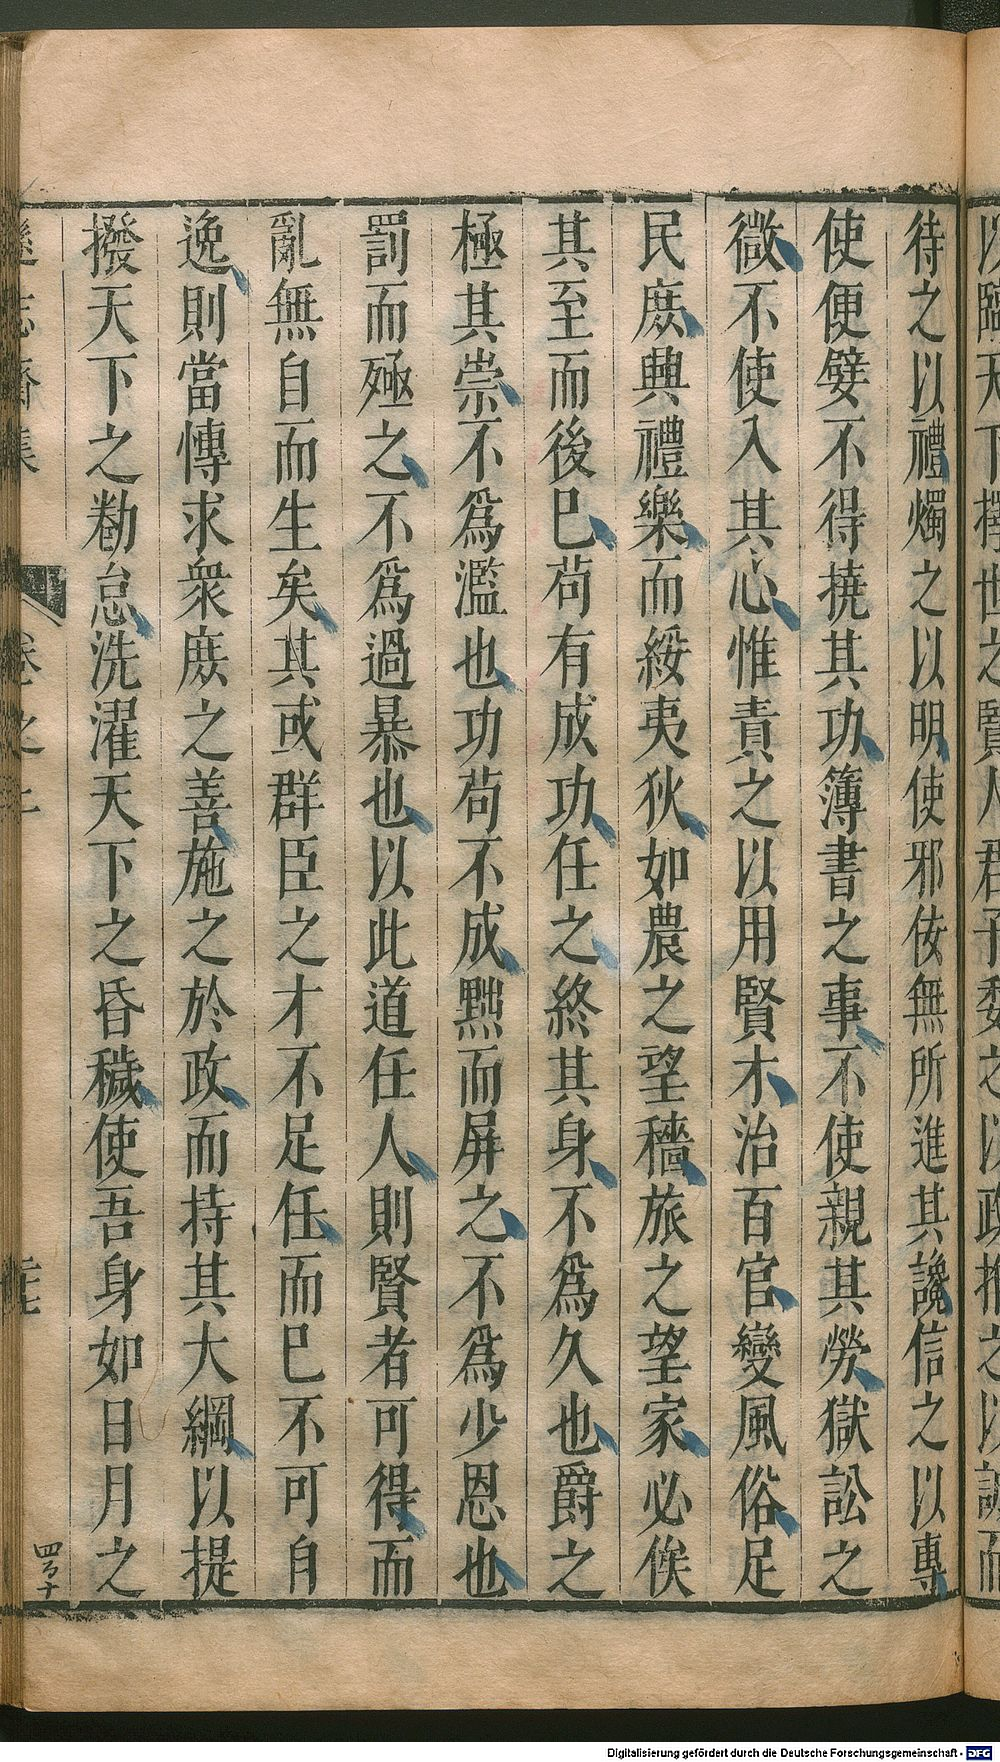 待之以禮燭之以明使邪佞無所進其讒信之以專
使便嬖不得撓其功簿書之事不使親其勞獄訟之
微不使入其心惟責之以用賢才治百官變風俗足
民庶興禮樂而綏夷狄如農之望穡旅之望家必俟
其至而後已苟有成功任之終其身不爲久也爵之
極其崇不爲濫也功苟不成黜而屏之不爲少恩也
罰而殛之不爲過暴也以此道任人則賢者可得而
亂無自而生矣其或群臣之才不足任而已不可自
逸則當慱求衆庶之善施之於政而持其大綱以提
撥天下之勌怠洗濯天下之昏穢使吾身如日月之
遜志齋集
卷之二
Digitalisierung gefördert durch die Deutsche Forschungsgemeinschaft - DFG